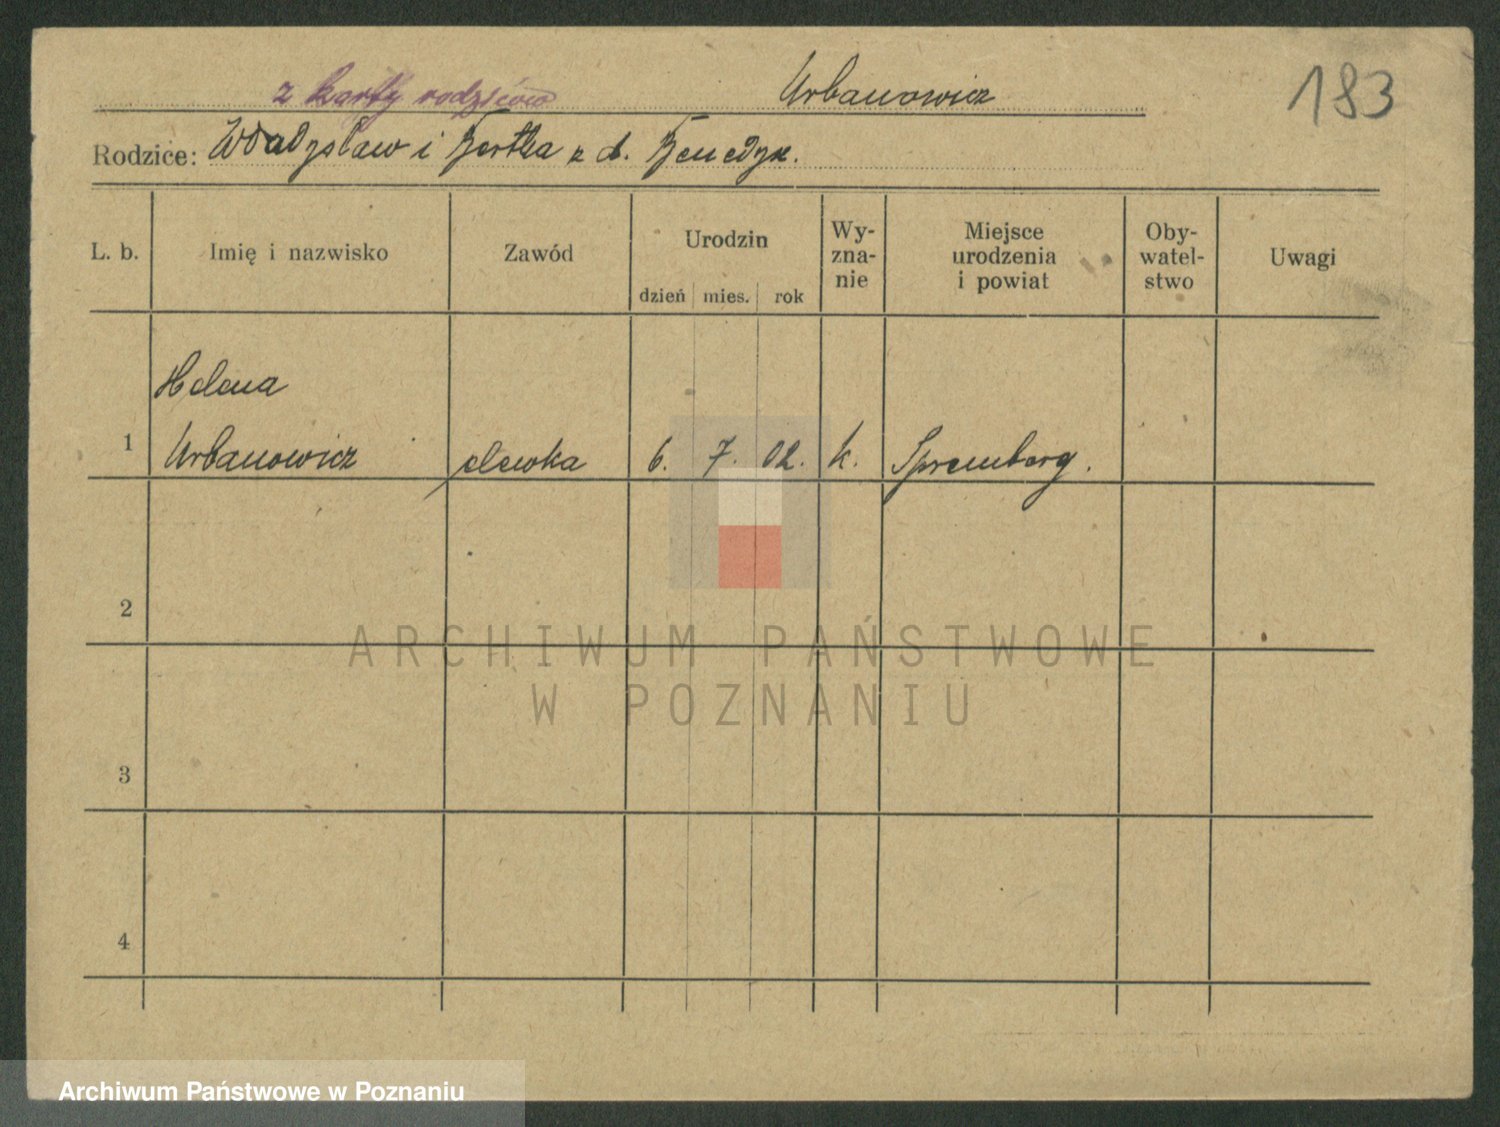 z karty rodziców Urbanowicz 183
Rodzice: Władysław i Bertha z d. Benedyx.
L. b. Imię i nazwisko Zawód Urodzin dzień mies. rok Wy-zna-nie Miejsce urodzenia i powiat Oby-watel-stwo Uwagi
Helena
1 Urbanowicz 6. 7. 02. k. Spremberg.
2
ARCHIWUM PAŃSTWOWE
W POZNANIU
3
4
Archiwum Państwowe w Poznaniu